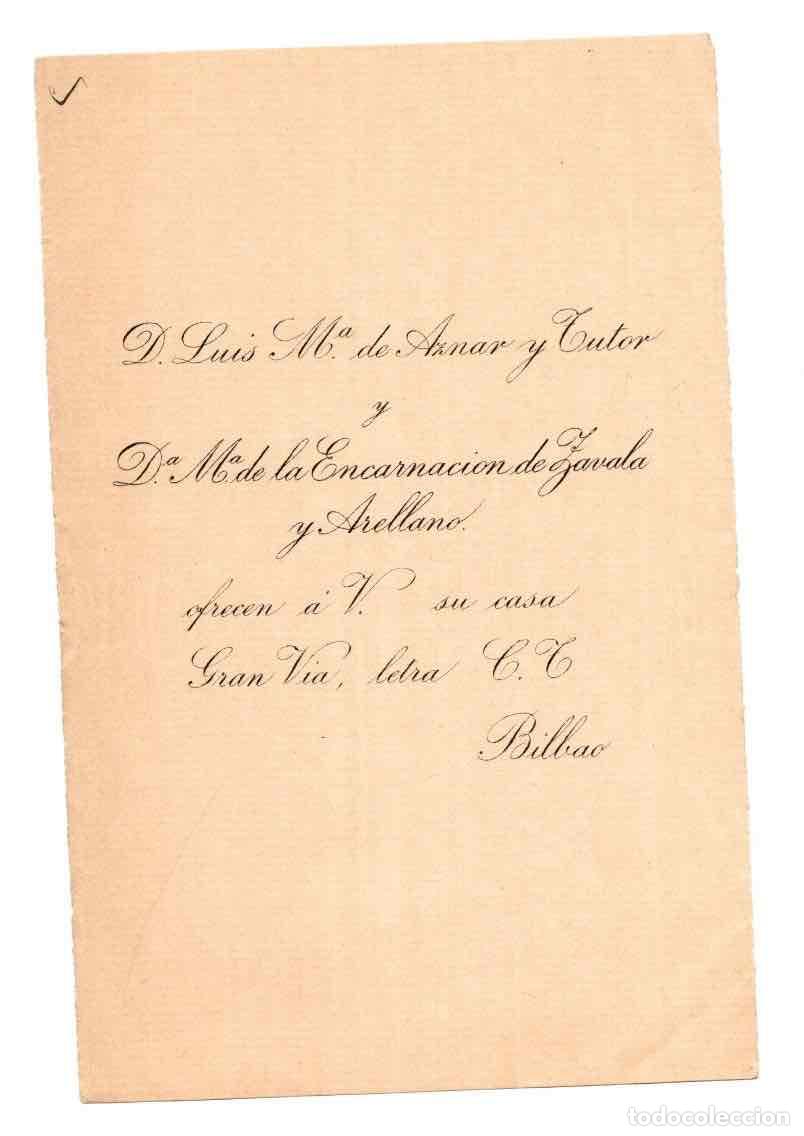 D. Luis M.ª de Aznar y Tutor
y
D.ª M.ª de la Encarnacion de Zavala
y Arellano.
ofrecen á V. su casa
Gran Via, letra C. T
Bilbao
todocoleccion